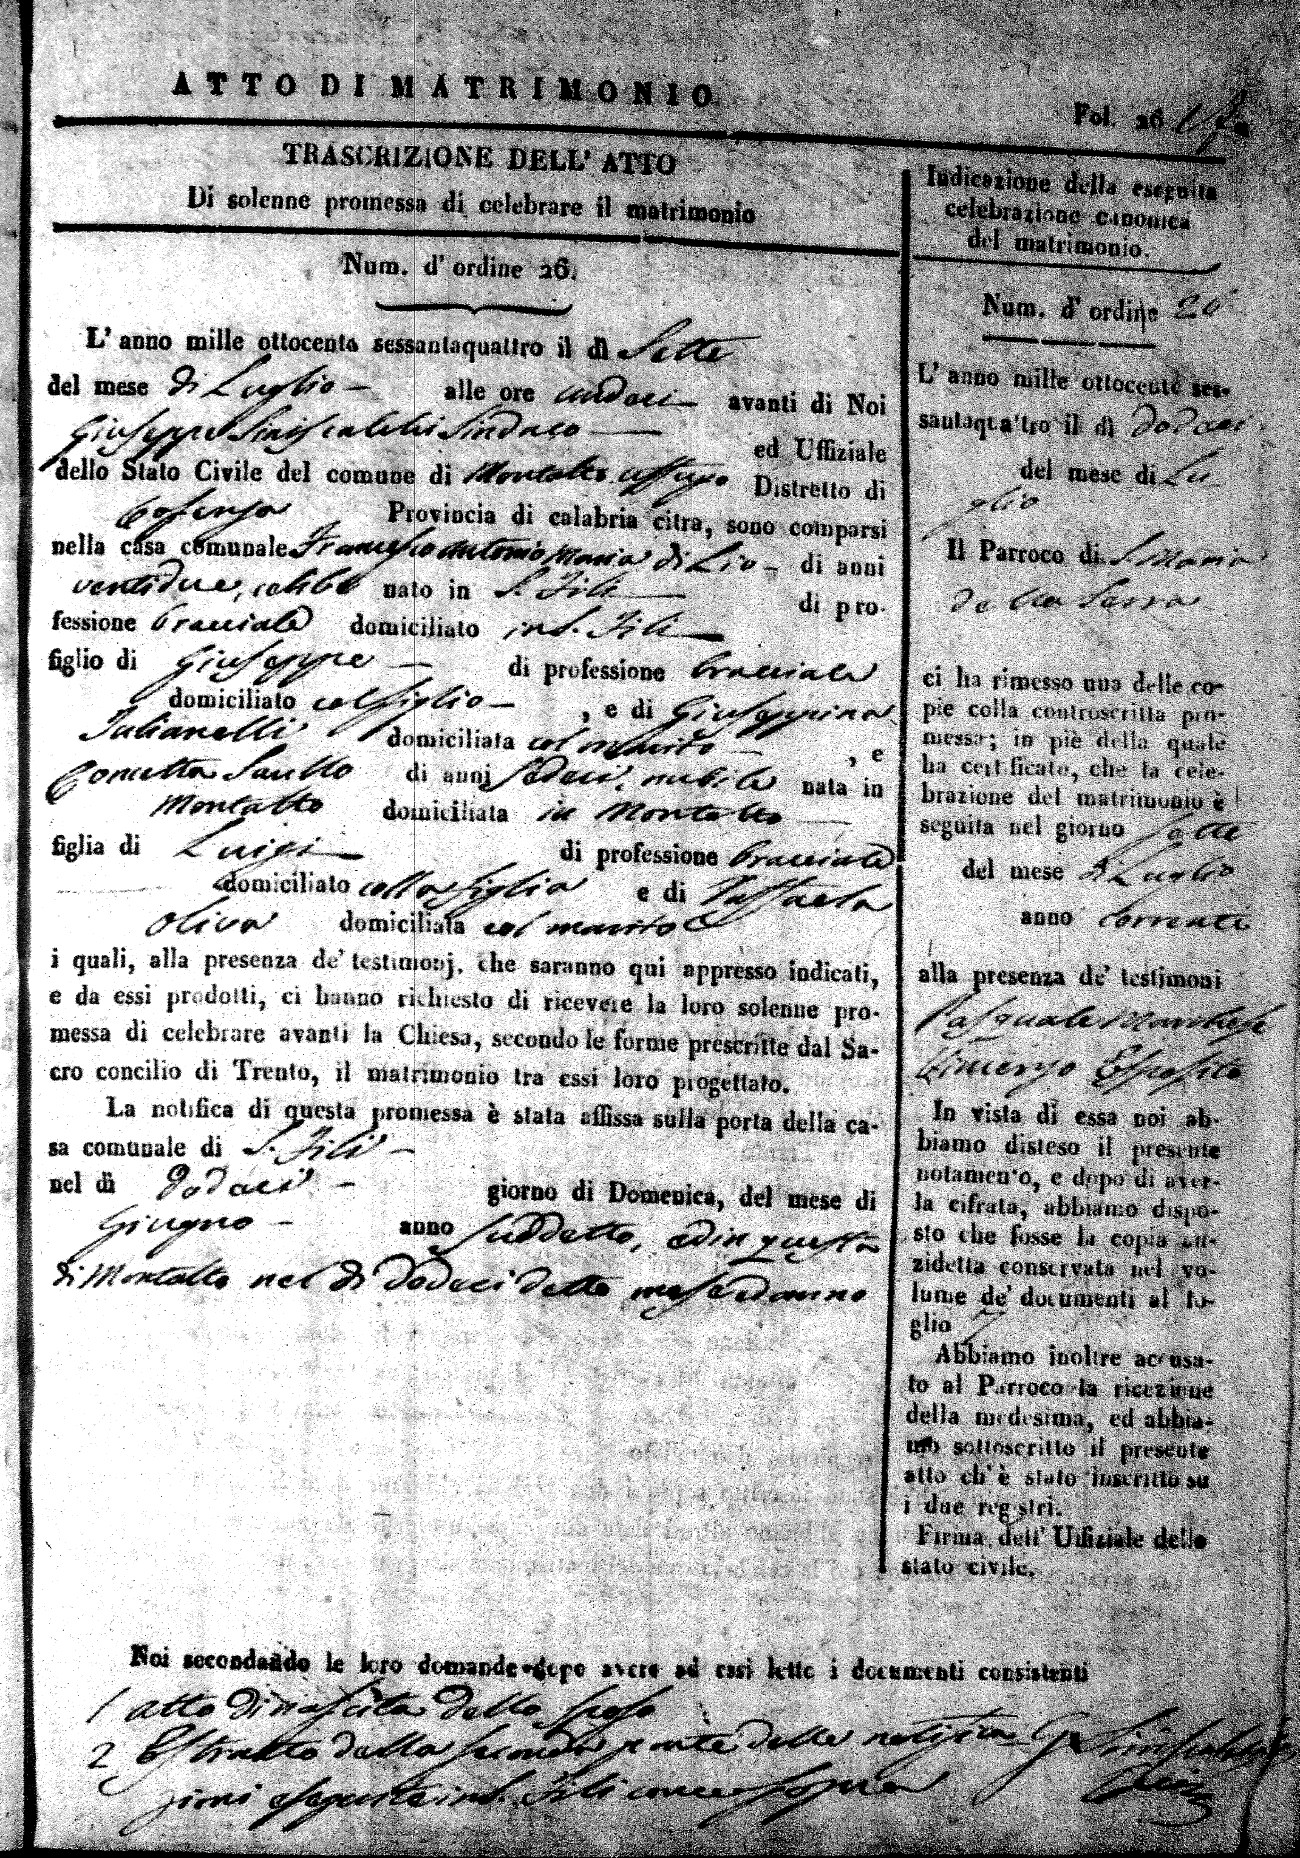 ATTO DI MATRIMONIO
Fol. 26
TRASCRIZIONE DELL' ATTO
Di solenne promessa di celebrare il matrimonio
Num. d' ordine 26.
L' anno mille ottocento sessantaquattro il dì Sette
del mese di Luglio — alle ore undeci — avanti di Noi
Giuseppe Siniscalchi Sindaco — ed Uffiziale
dello Stato Civile del comune di Montalto Uffugo Distretto di
Cosenza Provincia di calabria citra, sono comparsi
nella casa comunale Francesco Antonio Maria di Lio — di anni
ventidue, celibe nato in S. Fili — di pro-
fessione bracciale domiciliato in S. Fili —
figlio di Giuseppe — di professione bracciale
domiciliato col figlio — , e di Giuseppina
Julianelli domiciliata col marito — , e
Concetta Saullo di anni sedeci, nubile nata in
Montalto domiciliata in Montalto —
figlia di Luigi — di professione bracciale
domiciliato colla figlia e di Raffaela
Oliva domiciliata col marito
i quali, alla presenza de' testimonj, che saranno qui appresso indicati,
e da essi prodotti, ci hanno richiesto di ricevere la loro solenne pro-
messa di celebrare avanti la Chiesa, secondo le forme prescritte dal Sa-
cro concilio di Trento, il matrimonio tra essi loro progettato.
La notifica di questa promessa è stata affissa sulla porta della ca-
sa comunale di S. Fili —
nel dì dodeci — giorno di Domenica, del mese di
Giugno — anno suddetto, ed in questa
di Montalto nel dì dodeci detto mese ed anno
Indicazione della eseguita
celebrazione canonica
del matrimonio.
Num. d' ordine 26
L' anno mille ottocento ses-
santaquattro il dì dodeci
del mese di Lu-
glio
Il Parroco di S. Maria
della Serra
ci ha rimesso una delle co-
pie colla controscritta pro-
messa; in piè della quale
ha certificato, che la cele-
brazione del matrimonio è
seguita nel giorno Sette
del mese di Luglio
anno corrente
alla presenza de' testimoni
Pasquale Marchese
Vincenzo Esposito
In vista di essa noi ab-
biamo disteso il presente
notamento, e dopo di aver-
la cifrata, abbiamo dispo-
sto che fosse la copia an-
zidetta conservata nel vo-
lume de' documenti al fo-
glio 7
Abbiamo inoltre accusa-
to al Parroco la ricezione
della medesima, ed abbia-
mo sottoscritto il presente
atto ch' è stato inscritto su
i due registri.
Firma dell' Uffiziale dello
stato civile.
Noi secondando le loro domande dopo avere ad essi lette i documenti consistenti
1 atto di nascita dello sposo
2 Estratto della seconda parte delle notifica- G Siniscalchi
zioni eseguite in S. Fili come sopra